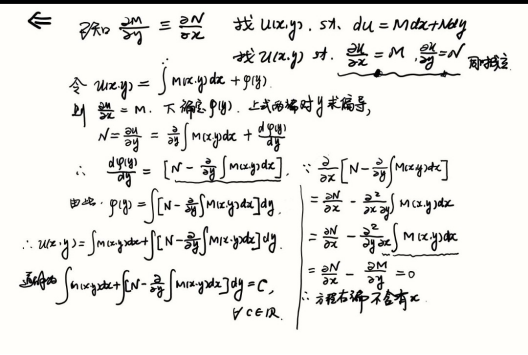 ⇐ 已知 ∂M/∂y ≡ ∂N/∂x 找 U(x,y), st. du = Mdx+Ndy
找 U(x,y) st. ∂u/∂x = M, ∂u/∂y = N 同时成立
令 u(x,y) = ∫M(x,y)dx + φ(y)
则 ∂u/∂x = M. 下确定 φ(y). 上式两端对 y 求偏导,
N = ∂u/∂y = ∂/∂y ∫M(x,y)dx + dφ(y)/dy
∴ dφ(y)/dy = [N - ∂/∂y ∫M(x,y)dx].
由此 φ(y) = ∫[N - ∂/∂y ∫M(x,y)dx]dy.
∴ u(x,y) = ∫M(x,y)dx + ∫[N - ∂/∂y ∫M(x,y)dx]dy.
通解为 ∫M(x,y)dx + ∫[N - ∂/∂y ∫M(x,y)dx]dy = C,
∀ C∈R.
∵ ∂/∂x [N - ∂/∂y ∫M(x,y)dx]
= ∂N/∂x - ∂²/∂x∂y ∫M(x,y)dx
= ∂N/∂x - ∂²/∂y∂x ∫M(x,y)dx
= ∂N/∂x - ∂M/∂y = 0
∴ 方程右端不含有x.